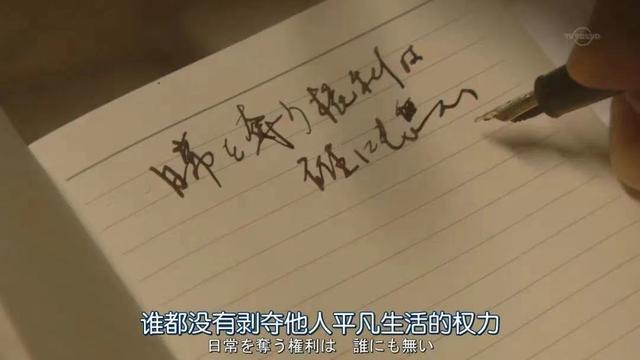 日常を奪う権利は
誰にもない
谁都没有剥夺他人平凡生活的权力
日常を奪う権利は 誰にも無い